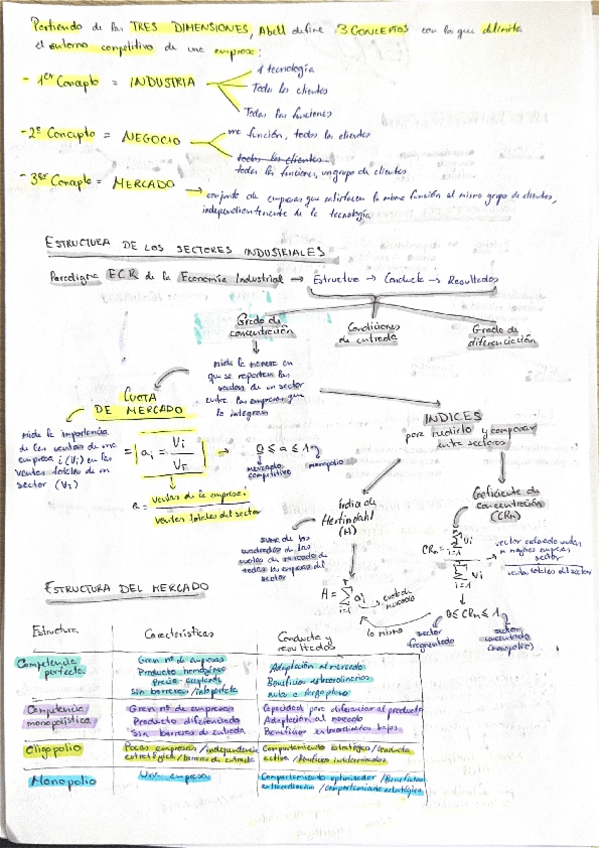 Partiendo de las TRES DIMENSIONES, Abell define 3 CONCEPTOS con los que delimita
el entorno competitivo de una empresa:
- 1er Concepto = INDUSTRIA
1 tecnología
Todos los clientes
Todas las funciones
- 2º Concepto = NEGOCIO
una función, todos los clientes
todos los clientes
todas las funciones, un grupo de clientes
- 3er Concepto = MERCADO → conjunto de empresas que satisfacen la misma función al mismo grupo de clientes,
independientemente de la tecnología
ESTRUCTURA DE LOS SECTORES INDUSTRIALES
Paradigma ECR de la Economía Industrial → Estructura → Conducta → Resultados
Grado de
concentración
Condiciones
de entrada
Grado de
diferenciación
mide la manera en
que se reparten las
ventas de un sector
entre las empresas que
lo integran
CUOTA
DE MERCADO
mide la importancia
de las ventas de una
empresa i (Vi) en las
ventas totales de un
sector (VT)
= ai = Vi / VT → 0 ≤ a ≤ 1
mercado
competitivo
monopolio
a = ventas de la empresa i / ventas totales del sector
INDICES
para medirlo y comparar
entre sectores
Índice de
Herfindahl
(H)
suma de los
cuadrados de las
cuotas de mercado de
todas las empresas del
sector
H = Σ ai
cuota de
mercado
Coeficiente de
concentración
(CRn)
CRn = Σ Vi / Σ Vi
i=1
i=1
sector
ventas totales del sector
0 ≤ CRn ≤ 1
lo mismo
sector
fragmentado
sector
concentrado
(monopolio)
ESTRUCTURA DEL MERCADO
Estructura
Características
Conducta y
resultados
Competencia
perfecta
Gran nº de empresas
Producto homogéneo
Precio aceptante
Sin barreras / info perfecta
Adaptación al mercado
Beneficios extraordinarios
nulos a largo plazo
Competencia
monopolística
Gran nº de empresas
Producto diferenciado
Sin barreras de entrada
Capacidad para diferenciar al producto
Adaptación al mercado
Beneficios extraordinarios bajos
Oligopolio
Pocas empresas /
estratégica / barreras de entrada
Comportamiento estratégico / conducta
activa / Beneficios indeterminados
Monopolio
Una empresa
Comportamiento optimizador / Beneficios
extraordinarios / comportamiento estratégico